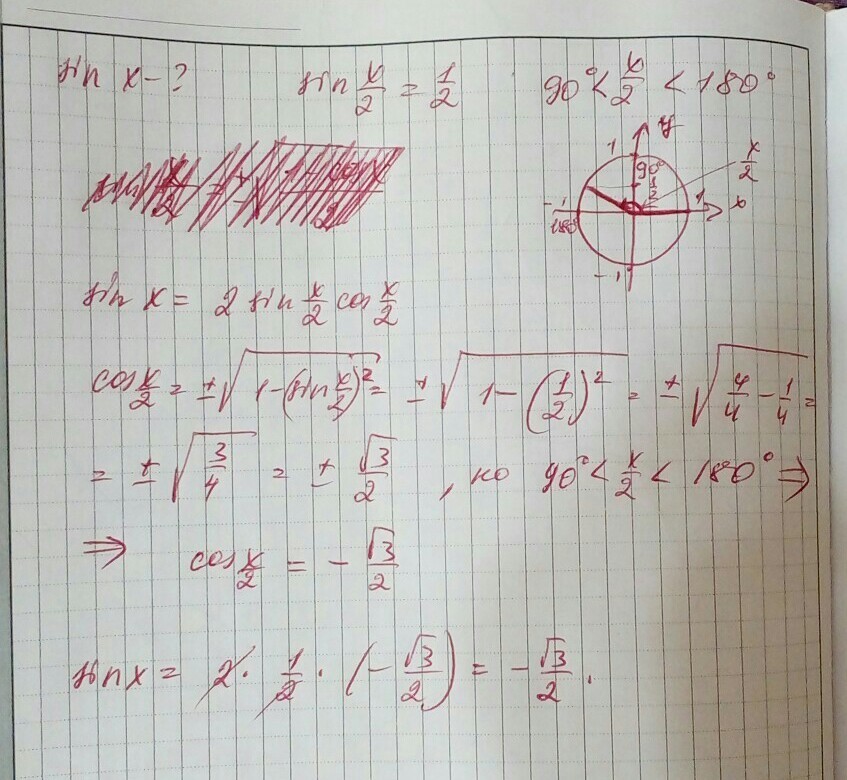 sin x - ? sin x/2 = 1/2 90° < x/2 < 180°
1 y
90° x/2
1/2
-1 1 x
180°
-1
sin x = 2 sin x/2 cos x/2
cos x/2 = ±√(1-(sin x/2)²) = ±√(1-(1/2)²) = ±√(4/4 - 1/4) =
= ±√(3/4) = ± √3/2 , но 90° < x/2 < 180° ⇒
⇒ cos x/2 = - √3/2
sin x = 2 · 1/2 · (- √3/2) = - √3/2 .